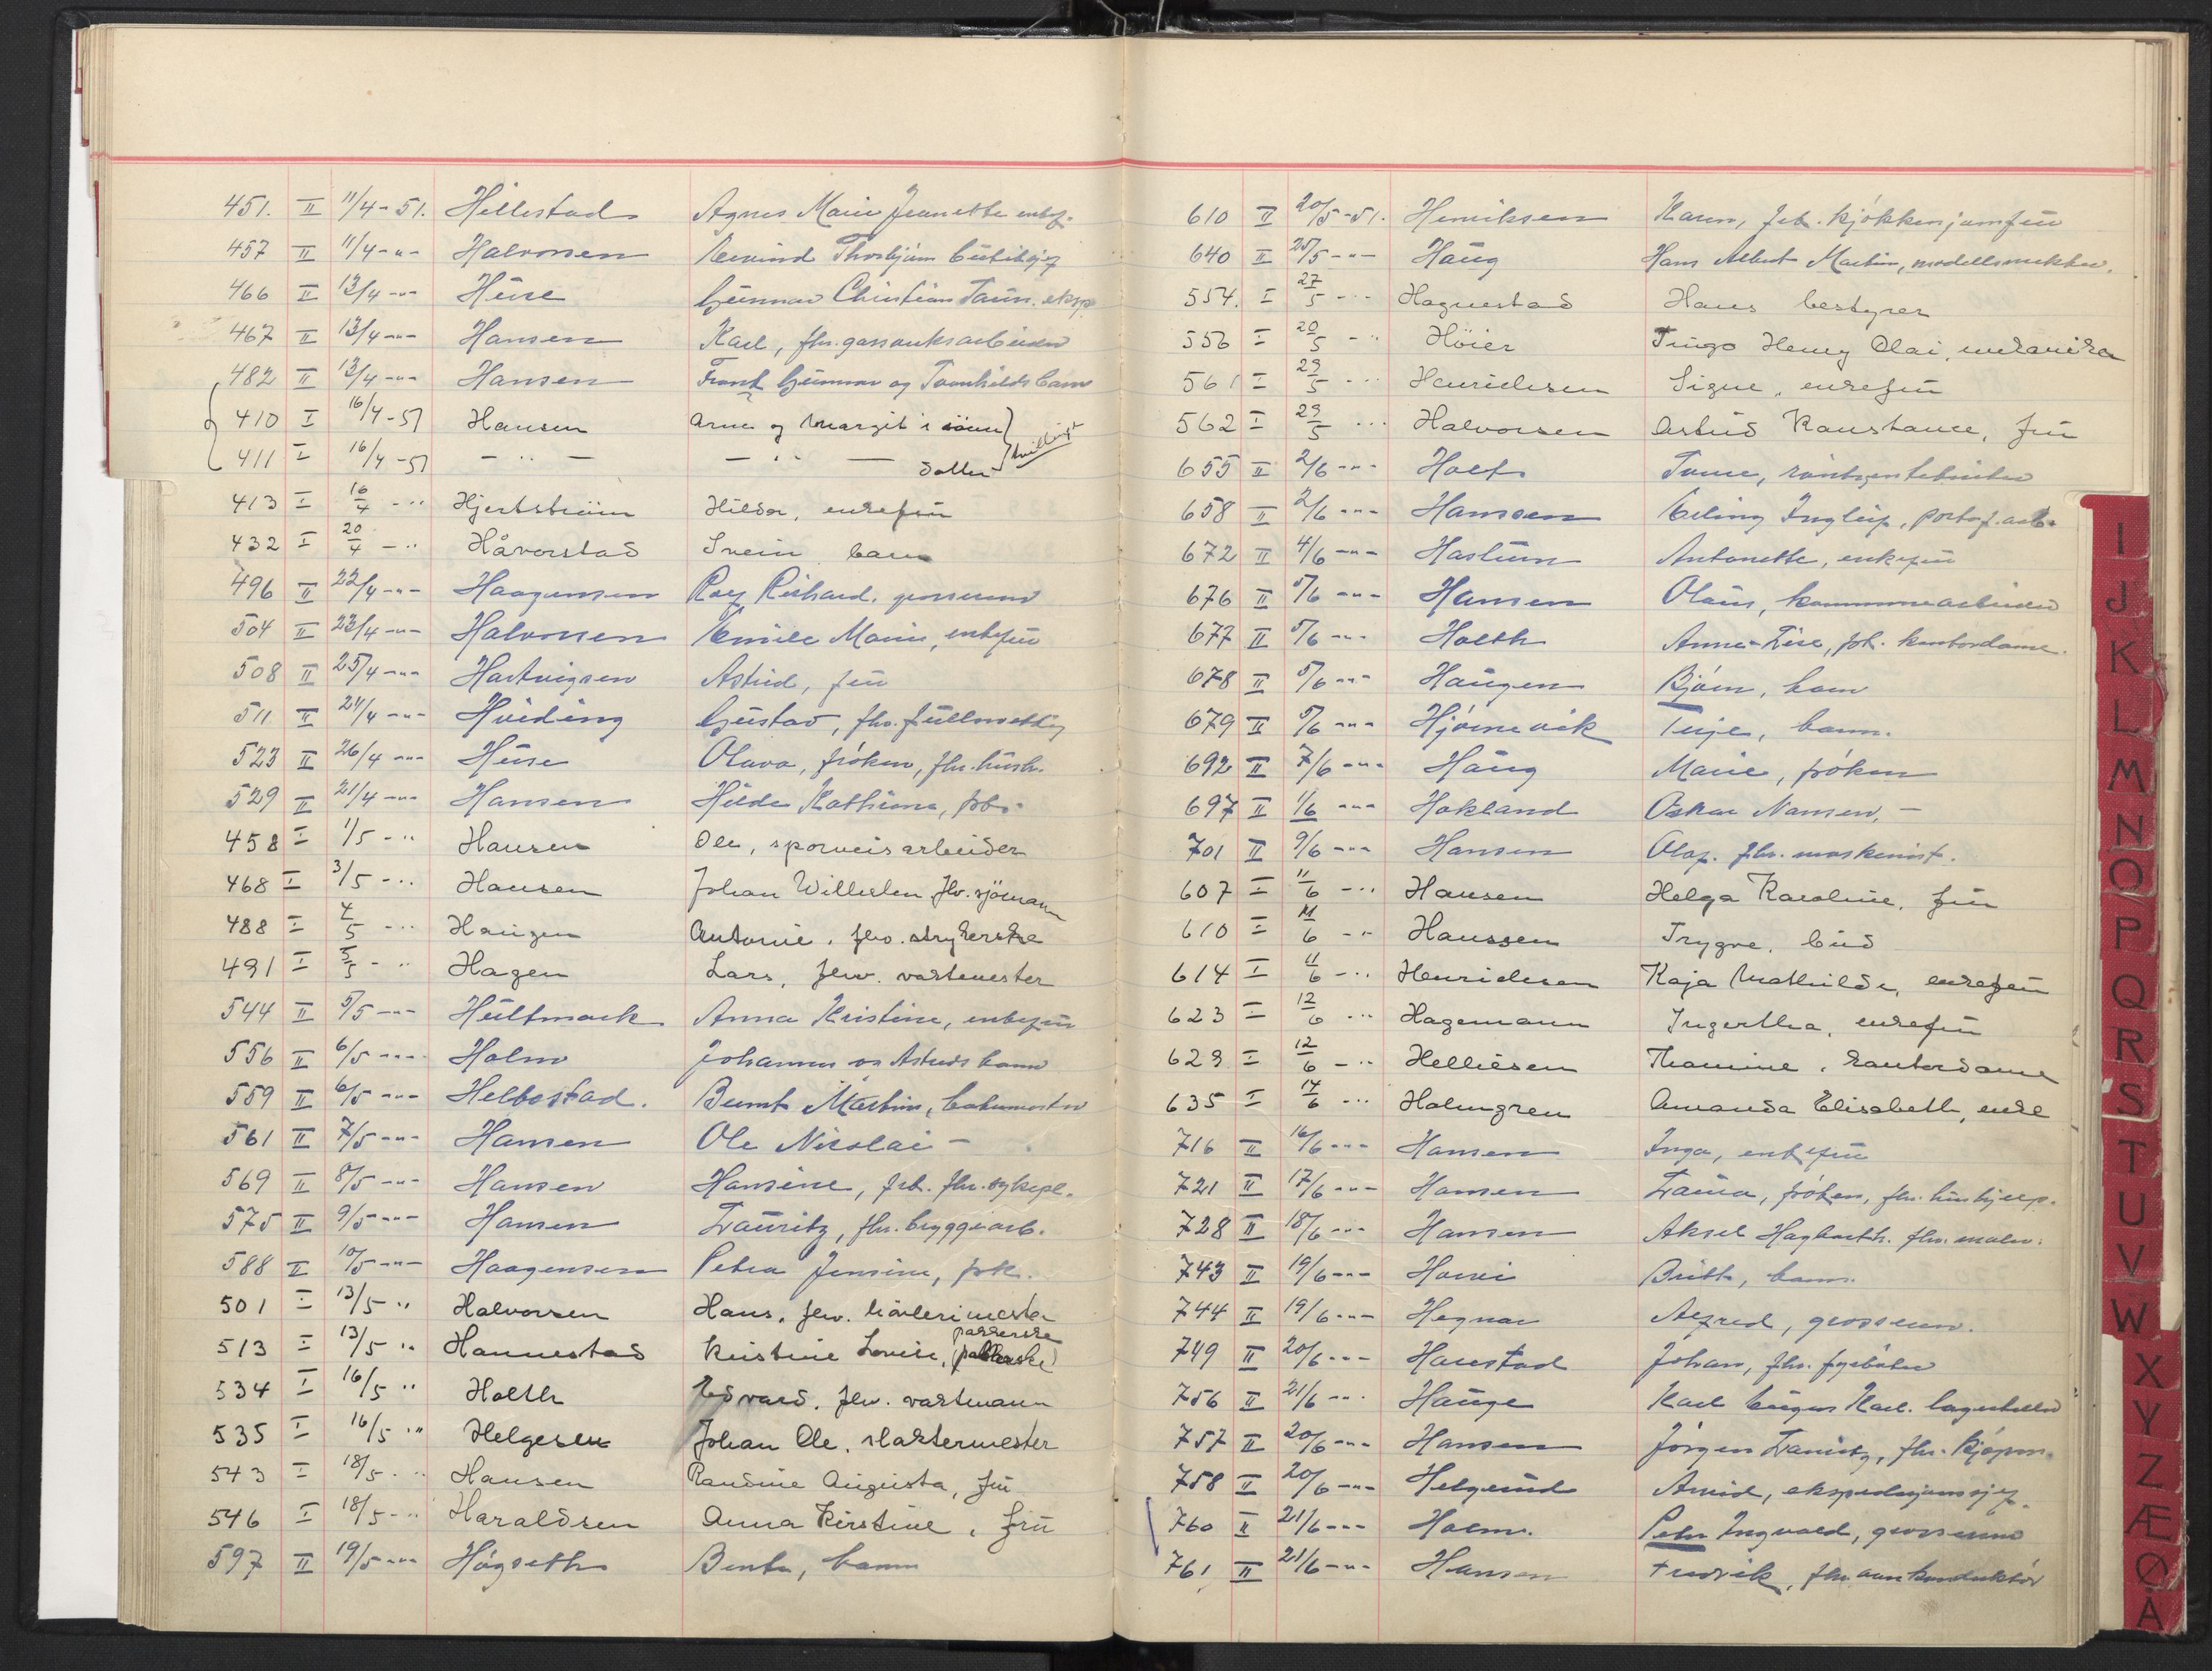 451. II 11/4-51. Hillestad Agnes Marie Jeanette enkef.
457 II 11/4-"- Halvorsen Eivind Thorbjørn
466 II 13/4-"- Huse Gunnar Christian eksp.
467 II 13/4-"- Hansen Karl, fhv. gassverksarbeider
482 II 13/4-"- Hansen Frank Gunnar og Barn
410 I 16/4-51 Hansen Arne og Margit i sönn
411 I 16/4-51 - " - - " - datter tvillinger
413 I 16/4 - " Hjertström Hilda, enkefrü
432 I 20/4 - " Håvorstad Svein barn
496 II 22/4-"- Haagensen Roy Richard, grosserer
504 II 23/4-"- Halvorsen Emilie Marie, enkefrü
508 II 25/4-"- Hartvigsen Astrid, frü
511 II 24/4-"- Hviding Gustav, fhv. fullmektig
523 II 26/4-"- Huse Olava, frøken, fhv. hush.
529 II 21/4-"- Hansen Hilda Kathrine, frk.
458 I 1/5 - " Hansen Ole, sporveisarbeider
468 I 3/5 - " Hansen Johan Wilhelm fhv. sjömann
488 I 4/5 - " Haugen Antonie, fhv. strykerske
491 I 5/5 - " Hagen Lars, fhv. vaktmester
544 II 5/5-"- Hultmark Anna Kristine, enkefrü
556 II 6/5-"- Holm Johannes og Astrids barn
559 II 6/5-"- Helbostad. Bernt Martin,
561 II 7/5-"- Hansen Ole Nicolai -
569 II 8/5-"- Hansen Hansine, frk. fhv. sykepl.
575 II 9/5-"- Hansen Lauritz, fhv. bryggearb.
588 II 10/5-"- Haagensen Petra Jensine, frk.
501 I 13/5 " Halvorsen Hans, fhv. høvlerimester
513 I 13/5 " Hannestad Kristine Lovise, (pakkerske) pakkerske
534 I 16/5 " Holth Edvard, fhv. vaktmann
535 I 16/5 " Helgesen Johan Ole, slaktermester
543 I 18/5 - " Hansen Randine Augusta, frü
546 I 18/5 - " Haraldsen Anna Kirstine, frü
597 II 19/5-"- Høgseth Bente, barn
610 II 20/5-51. Henriksen Karen, frk. kjøkkenjomfrü
640 II 25/5-"- Haug Hans Albert Martin, modellsnekker.
554. I 27/5 - " Hagnestad Hans bestyrer
556 I 20/5 - " Höier Henry Olai, mekaniker
561 I 29/5 - " Henriksen Signe, enkefrü
562 I 29/5 - " Halvorsen Astrid Konstance, frü
655 II 2/6-"- Holt röntgentekniker
658 II 2/6-"- Hansen Erling Ingleif, portef. arb.
672 II 4/6-"- Haslum Antonette, enkefrü
676 II 5/6-"- Hansen Olaus, kommunearbeider
677 II 5/6-"- Holth Anne-Lise, frk. kontordame.
678 II 5/6-"- Haugen Bjørn, barn
679 II 5/6-"- Hjørnevik Terje, barn.
692 II 7/6-"- Haug Marie, frøken
697 II 1/6-"- Hokland Oskar Nansen, -
701 II 9/6-"- Hansen Olaf. fhv. maskinist.
607 I 11/6 - " Hansen Helga Karoline, frü
610 I 11/6 - " Hanssen Trygve, büd
614 I 11/6 - " Henriksen Kaja Mathilde, enkefrü
623 I 12/6 - " Hagemann Ingertha, enkefrü
629 I 12/6 - " Helliesen Thomine, kontordame
635 I 14/6 - " Holmgren Amanda Elisabeth, enke
716 II 16/6-"- Hansen Inga, enkefrü
721 II 17/6-"- Hansen Laura, frøken, fhv. hushjelp.
728 II 18/6-"- Hansen Aksel Hagbarth. fhv. maler.
743 II 19/6-"- Britt, barn.
744 II 19/6-"- Hegnar Alfred, grosserer.
749 II 20/6-"- Harestad Johan, fhv. fyrbøter
756 II 21/6-"- Hauge Karl Karl. lagerholder
757 II 20/6-"- Hansen Jørgen Lauritz, fhv. kjøpm.
758 II 20/6-"- Helgerud Arvid, ekspedisjonssjef.
760 II 21/6-"- Holm. Peter Ingvald, grosserer
761 II 21/6-"- Hansen Fredrik, fhv. konduktör
I
J
K
L
M
N
O
P
Q
R
S
T
U
V
W
X
Y
Z
Æ
Ø
Å